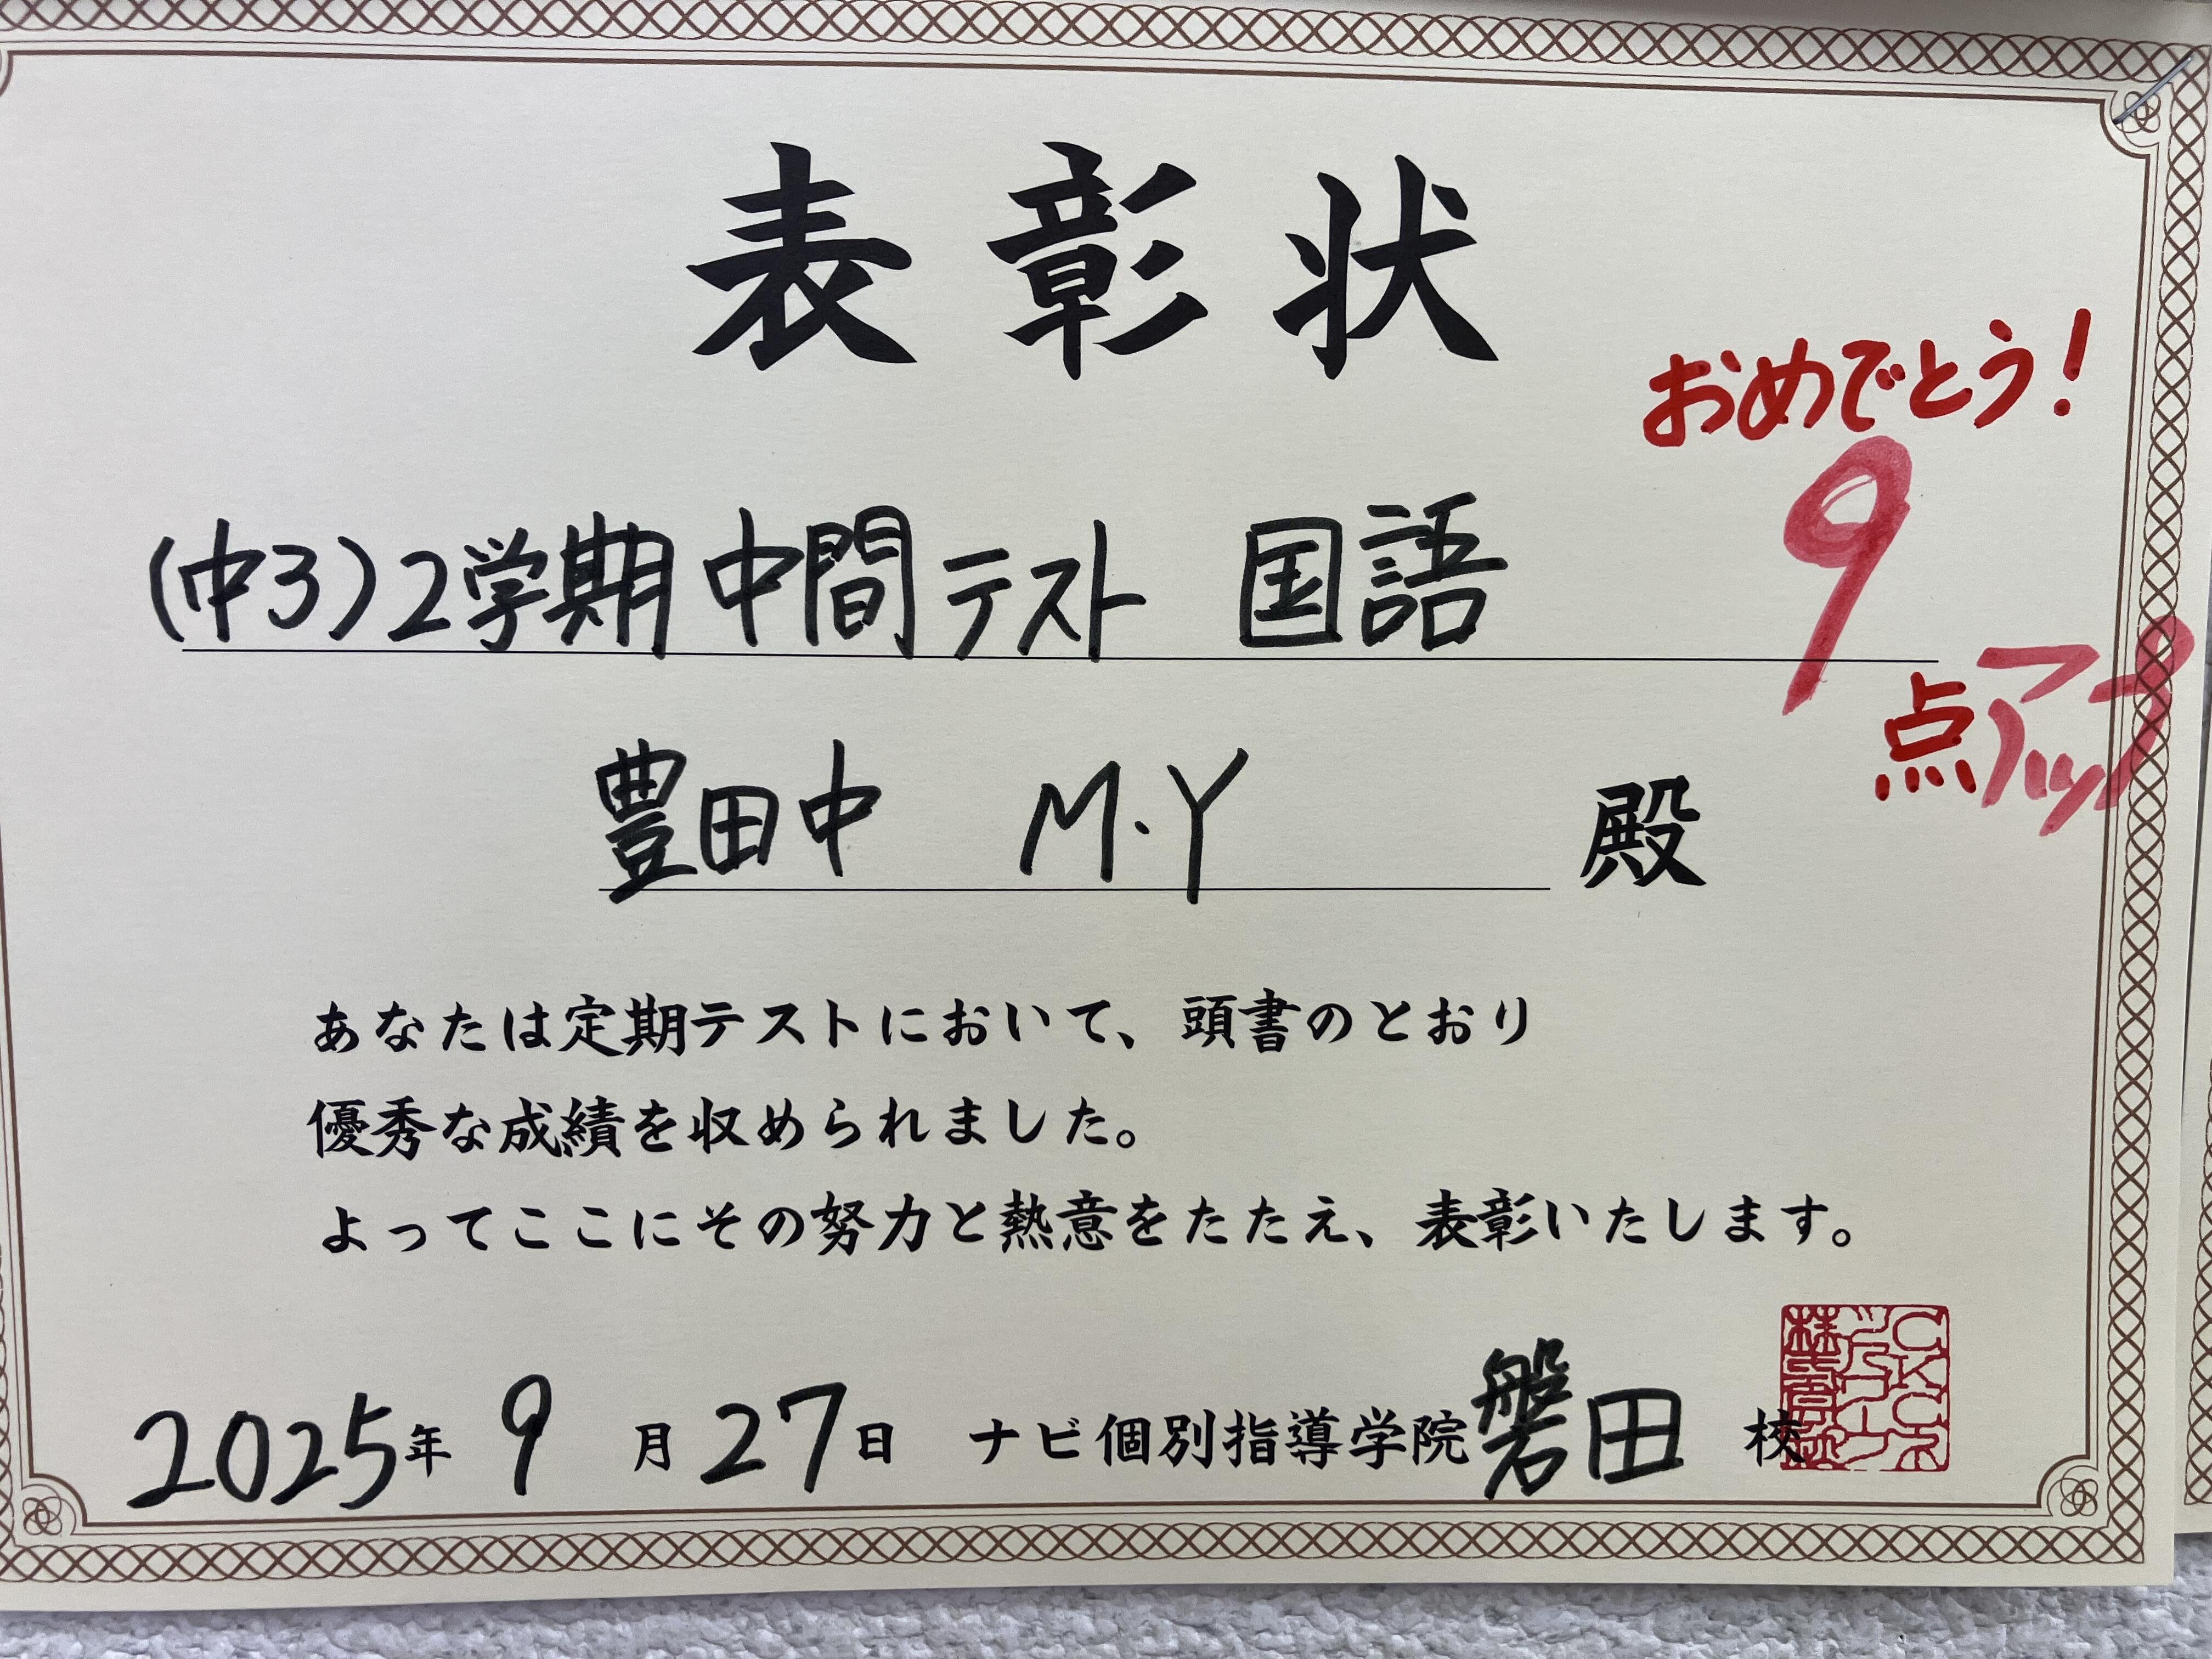 表彰状
おめでとう!
9
点アップ
(中3)2学期中間テスト 国語
豊田中 M.Y 殿
あなたは定期テストにおいて、頭書のとおり
優秀な成績を収められました。
よってここにその努力と熱意をたたえ、表彰いたします。
2025年 9月27日 ナビ個別指導学院磐田校